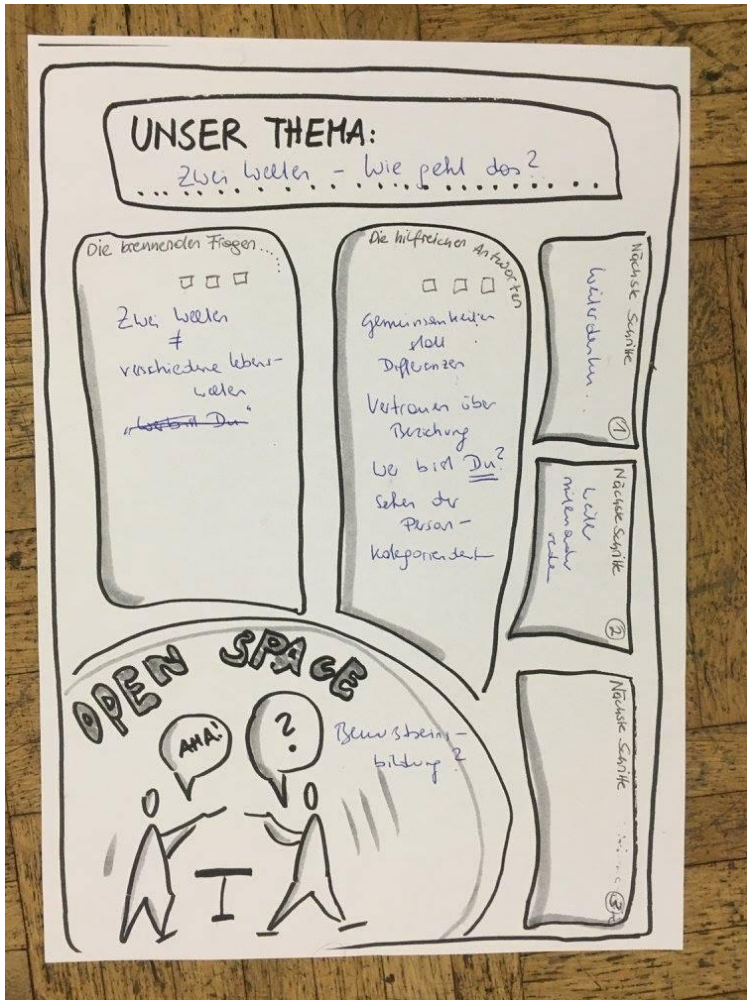 UNSER THEMA:
Zwei Welten - Wie geht das?
Die brennenden Fragen.....
Zwei Welten
≠
verschiedene Lebens-
welten
"Wer bist Du"
Die hilfreichen Antworten
Gemeinsamkeiten
statt
Differenzen
Vertrauen über
Beziehung
Wer bist Du?
Sehen der
Person -
Nächste Schritte
Weiterdenken.
1
Nächste Schritte
weiter
miteinander
reden
2
Nächste Schritte
3
OPEN SPACE
AHA!
?
Bewusstseins-
bildung?